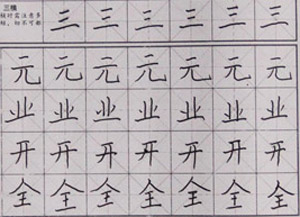 三横
三 三 三 三 三 三
元 元 元 元 元 元 元
业 业 业 业 业 业 业
开 开 开 开 开 开 开
全 全 全 全 全 全 全